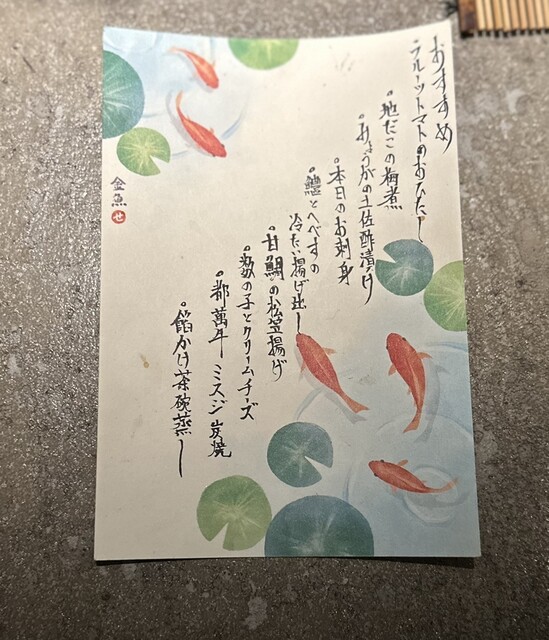 おすすめ
・フルーツトマトのおひたし
・地だこの梅煮
・みょうがの土佐酢漬け
・本日のお刺身
・鱧とへべすの
冷たい揚げ出し
・甘鯛の松笠揚げ
・数の子とクリームチーズ
・都萬牛 ミスジ 炭焼
・餡かけ茶碗蒸し
金魚
せ